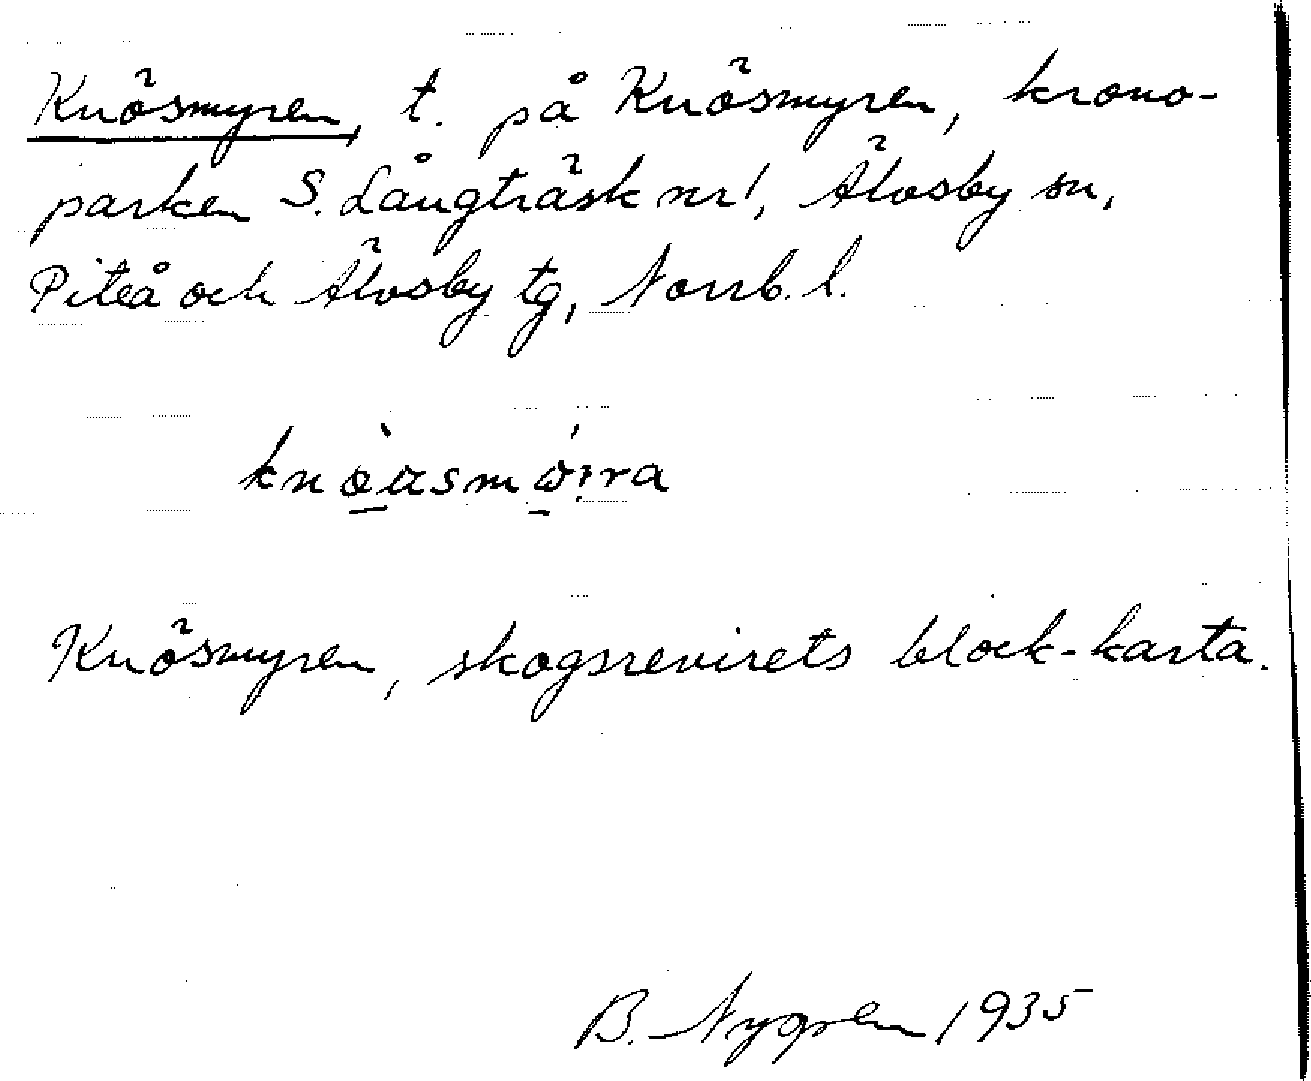 Knösmyren, t. på Knösmyren, krono-
parken S. Långträsk nr 1, Älvsby sn,
Piteå och Älvsby tg, Norrb. l.
Knösmyren, skogsrevirets block-karta.
B. Nygren 1935